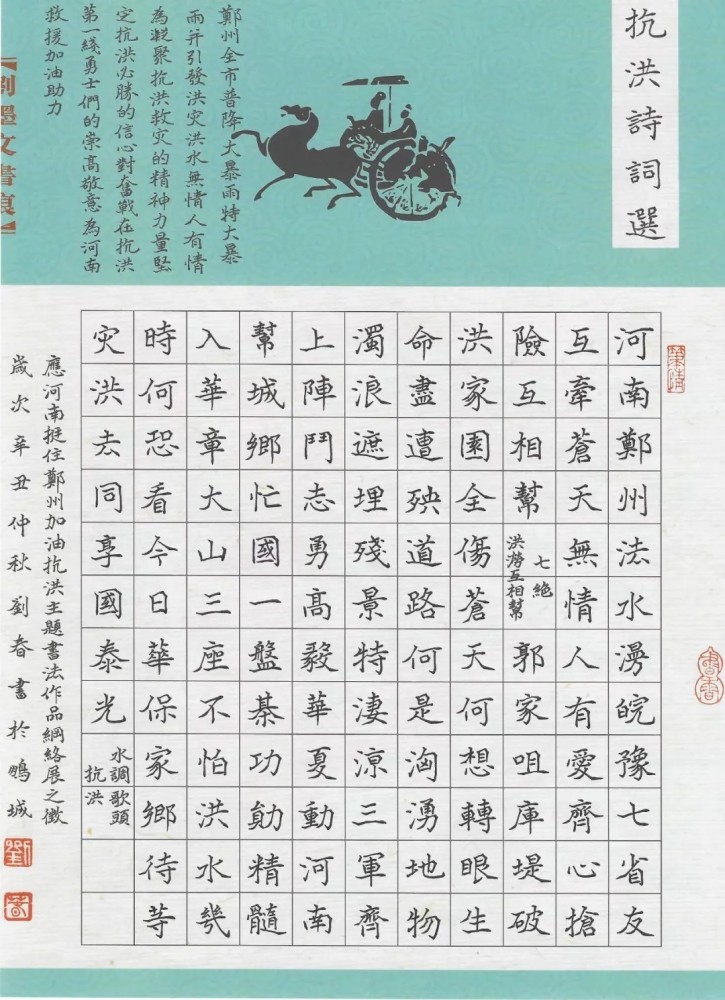 抗洪詩詞選
鄭州全市普降大暴雨特大暴
雨并引發洪灾洪水無情人有情
為凝聚抗洪救灾的精神力量堅
定抗洪必勝的信心對奮戰在抗洪
第一綫勇士們的崇高敬意為河南
救援加油助力
【劉墨文書痕】
河南鄭州法水漫皖豫七省友
互牽蒼天無情人有愛齊心搶
險互相幫
七絕
洪澇互相幫
郭家咀庫堤破
洪家園全傷蒼天何想轉眼生
命盡遭殃道路何是洶湧地物
濁浪遮埋殘景特淒涼三軍齊
上陣鬥志勇高毅華夏動河南
幫城鄉忙國一盤棊功勛精髓
入華章大山三座不怕洪水幾
時何恐看今日華保家鄉待等
灾洪去同享國泰光
水調歌頭
抗洪
應河南挺住鄭州加油抗洪主題書法作品網絡展之徵
歲次辛丑仲秋劉春書於鵬城
劉